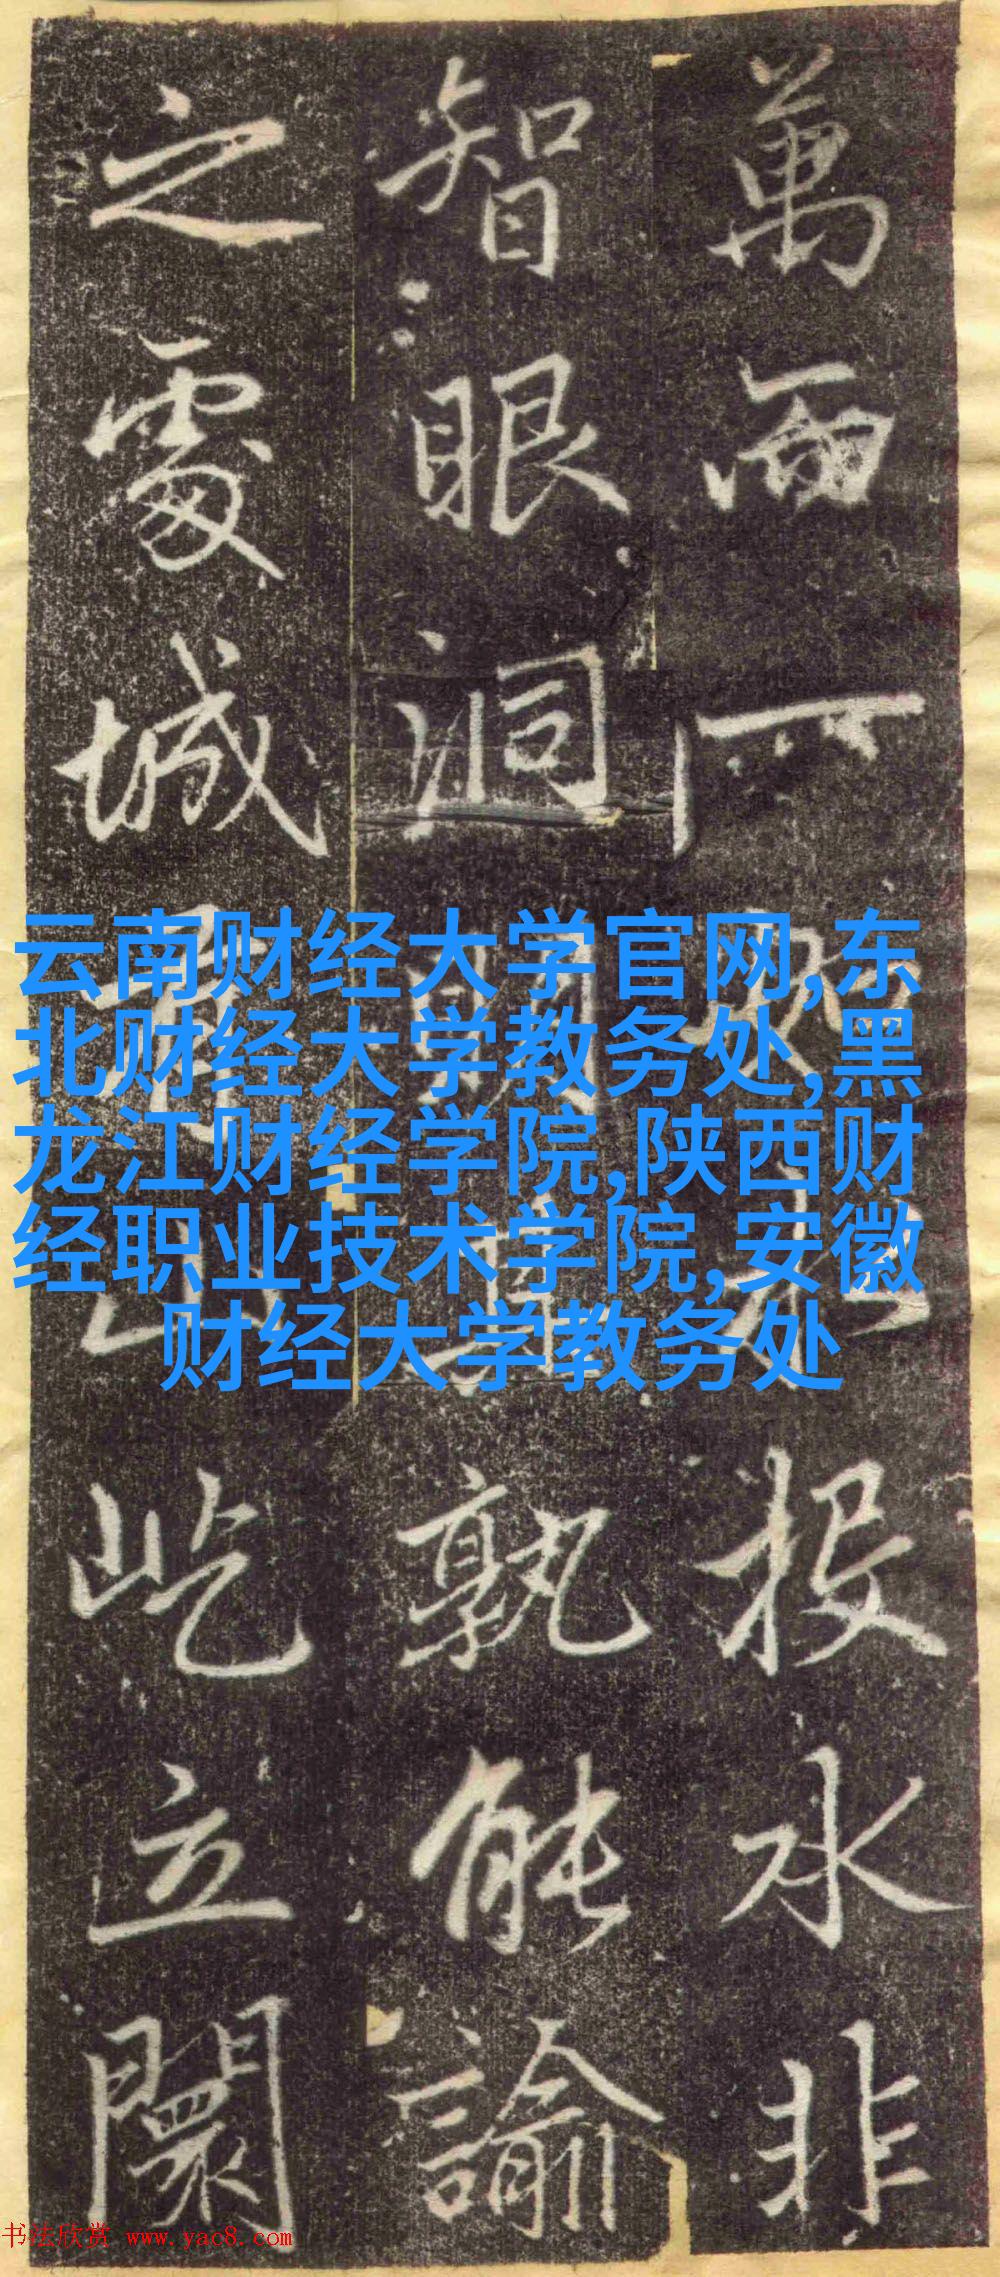 萬一投水非
智眼洞明孰能諭
之處城山屹立闤
云南财经大学官网,东
北财经大学教务处,黑
龙江财经学院,陕西财
经职业技术学院,安徽
财经大学教务处
书法欣赏 www.yac8.com